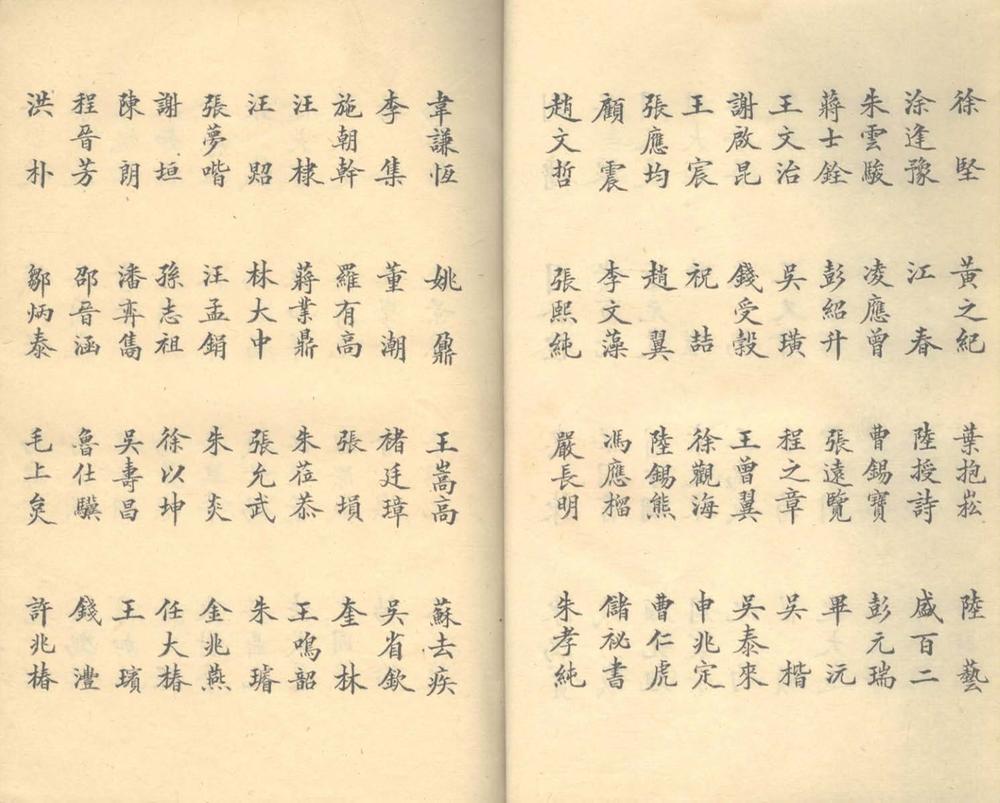 徐堅 黃之紀 葉抱崧 陸藝
涂逢豫 江春 陸授詩 盛百二
朱雲駿 凌應曾 曹錫寶 彭元瑞
蔣士銓 彭紹升 張遠覽 畢沅
王文治 吳璜 程之章 吳楷
謝啟昆 錢受穀 王曾翼 吳泰來
王宸 祝喆 徐觀海 申兆定
張應均 趙翼 陸錫熊 曹仁虎
顧震 李文藻 馮應榴 儲祕書
趙文哲 張熙純 嚴長明 朱孝純
韋謙恆 姚鼐 王嵩高 蘇去疾
李集 董潮 褚廷璋 吳省欽
施朝幹 羅有高 張塤 奎林
汪棣 蔣業鼎 朱蒞恭 王鳴韶
汪 林大中 張允武 朱璿
張夢喈 汪孟鋗 朱炎 金兆燕
謝垣 孫志祖 徐以坤 任大椿
陳朗 潘弈雋 吳壽昌 王璸
程晉芳 邵晉涵 魯仕驥 錢灃
洪朴 鄒炳泰 毛上炱 許兆椿